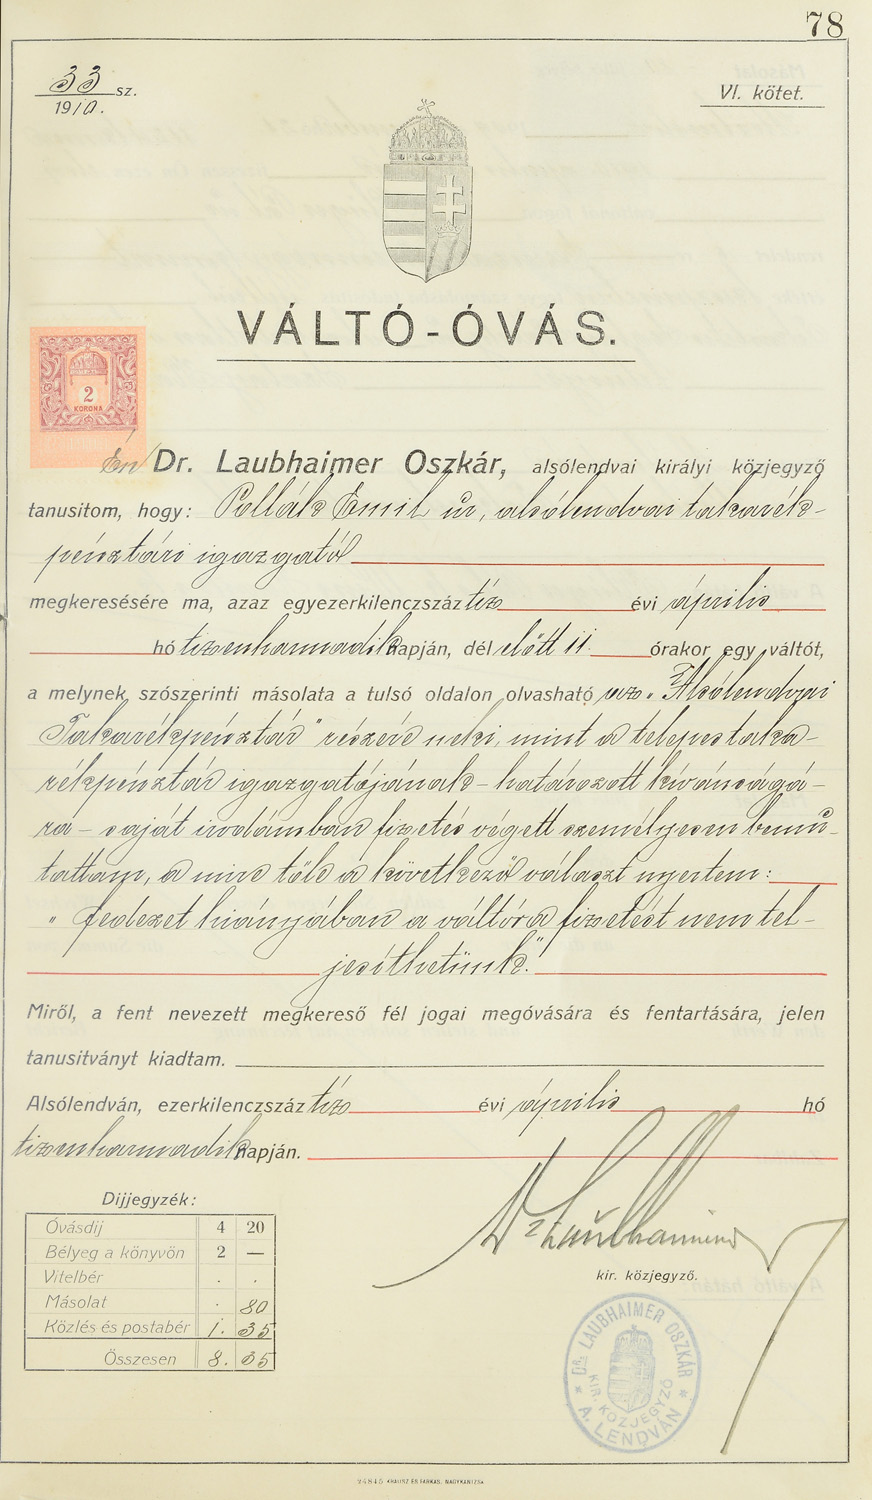 78
33 sz.
1910.
VI. kötet.
VÁLTÓ-ÓVÁS.
2
KORONA
Én Dr. Laubhaimer Oszkár, alsólendvai királyi közjegyző
tanusitom, hogy: Pollák Emil úr, alsólendvai takarék-
pénztári igazgató
megkeresésére ma, azaz egyezerkilenczszáz tíz évi április
hó tizenharmadik napján, dél előtt 11 órakor egy váltót,
a melynek szószerinti másolata a tulsó oldalon olvasható az „Alsólendvai
Takarékpénztár" részére neki, mint a telepes taka-
rékpénztár igazgatójának – határozott kívánságá-
ra – saját irodámban fizetés végett személyesen bemu-
tattam, a mire tőle a következő választ nyertem:
„fedezet hiányában a váltóra fizetést nem tel-
jesíthetünk."
Miről, a fent nevezett megkereső fél jogai megóvására és fentartására, jelen
tanusitványt kiadtam.
Alsólendván, ezerkilenczszáz tíz évi április hó
tizenharmadik napján.
Dr Laubhaimer
kir. közjegyző.
Dijjegyzék:
Óvásdij 4 20
Bélyeg a könyvön 2 —
Vitelbér . .
Másolat . 80
Közlés és postabér 1. 35
Összesen 8. 35
DR. LAUBHAIMER OSZKÁR
KIR. KÖZJEGYZŐ
* A. LENDVÁN *
24845 KRAUSZ ÉS FARKAS, NAGYKANIZSA